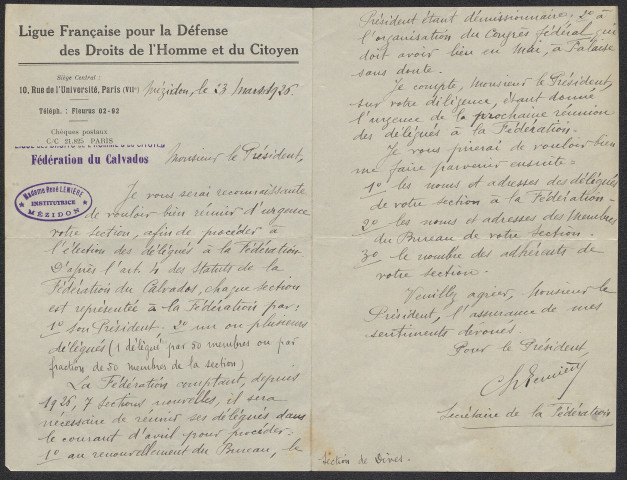 Ligue Française pour la Défense
des Droits de l'Homme et du Citoyen
Siège Central :
10, Rue de l'Université, Paris (VIIe)
Mézidon, le 23 mars 1926
Téléph. : Fleurus 02-92
Chèques postaux
C/C 21.825 PARIS
Fédération du Calvados
Monsieur le Président,
Madame René LEMIÈRE
INSTITUTRICE
MÉZIDON
Je vous serai reconnaissante
de vouloir bien réunir d'urgence
votre section, afin de procéder à
l'élection des délégués à la Fédération.
D'après l'art. 4 des Statuts de la
Fédération du Calvados, chaque section
est représentée à la Fédération par:
1º Son Président. 2º un ou plusieurs
délégués (1 délégué par 50 membres ou par
fraction de 50 membres de la section).
La Fédération comptant, depuis
1926, 7 sections nouvelles, il sera
nécessaire de réunir ses délégués dans
le courant d'avril pour procéder:
1º au renouvellement du Bureau, le
Président étant démissionnaire; 2º à
l'organisation du Congrès fédéral qui
doit avoir lieu en Mai, à Falaise
sans doute.
Je compte, Monsieur le Président,
sur votre diligence, étant donné
l'urgence de la prochaine réunion
des délégués à la Fédération.
Je vous prierai de vouloir bien
me faire parvenir ensuite:
1º les noms et adresses des délégués
de votre section à la Fédération -
2º les noms et adresses des Membres
du Bureau de votre section.
3º le nombre des adhérents de
votre section.
Veuillez agréer, Monsieur le
Président, l'assurance de mes
sentiments dévoués.
Pour le Président
Secrétaire de la Fédération
Section de Dives.